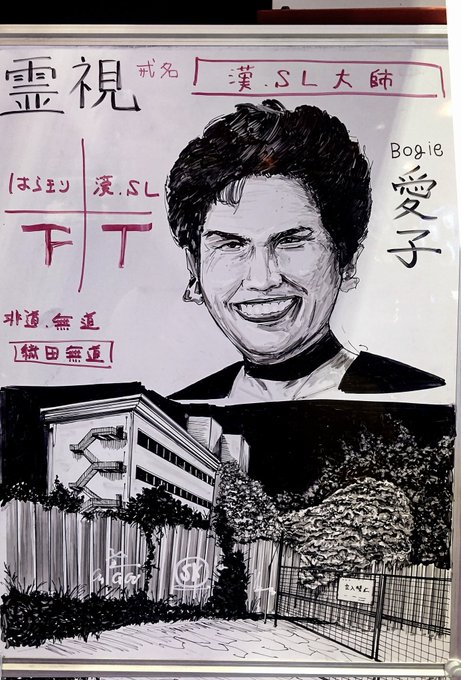 霊視 戒名 漢.SL大師
Bogie
愛子
漢.SL
下 T
非道.無道
織田無道
立入禁止